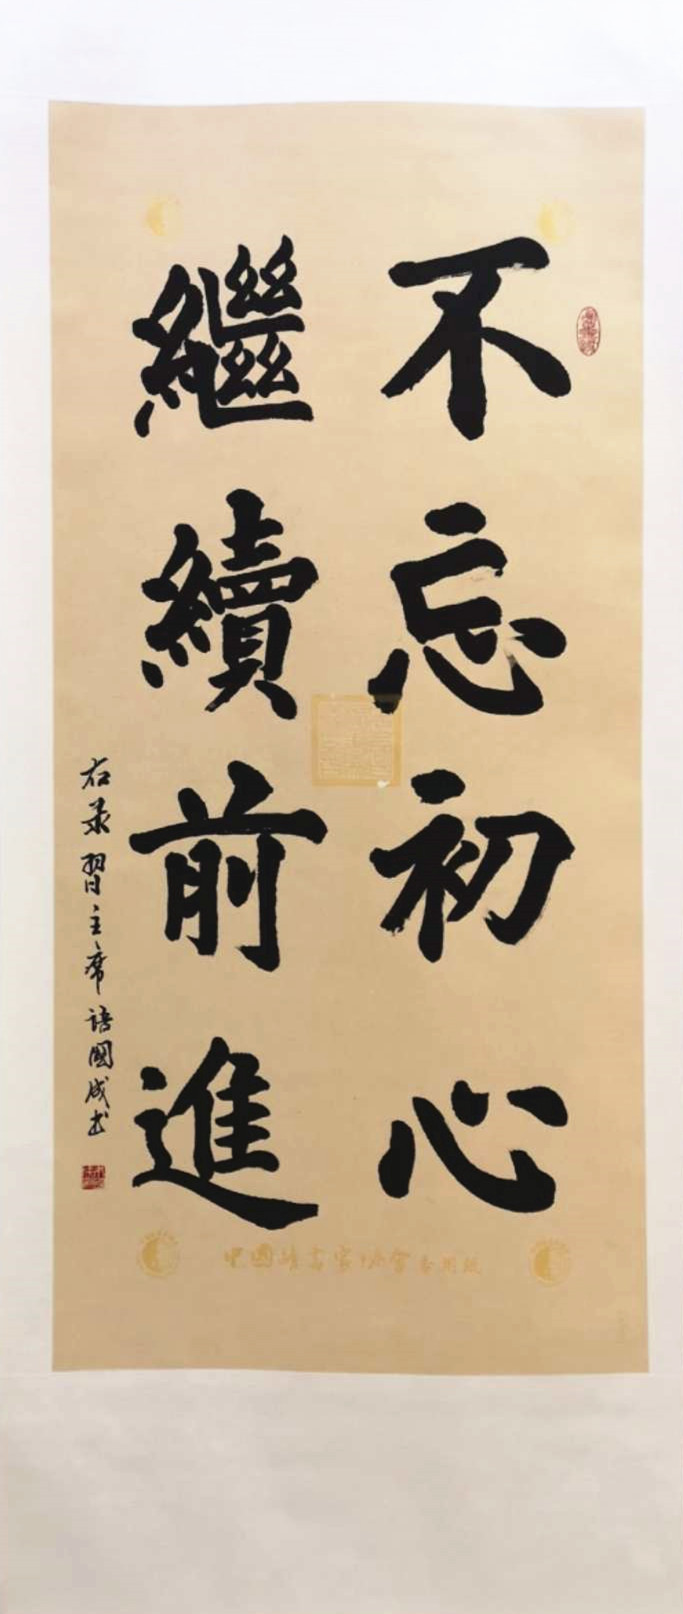 不忘初心
繼續前進
右录習主席語國成书
中國書画家协会专用紙